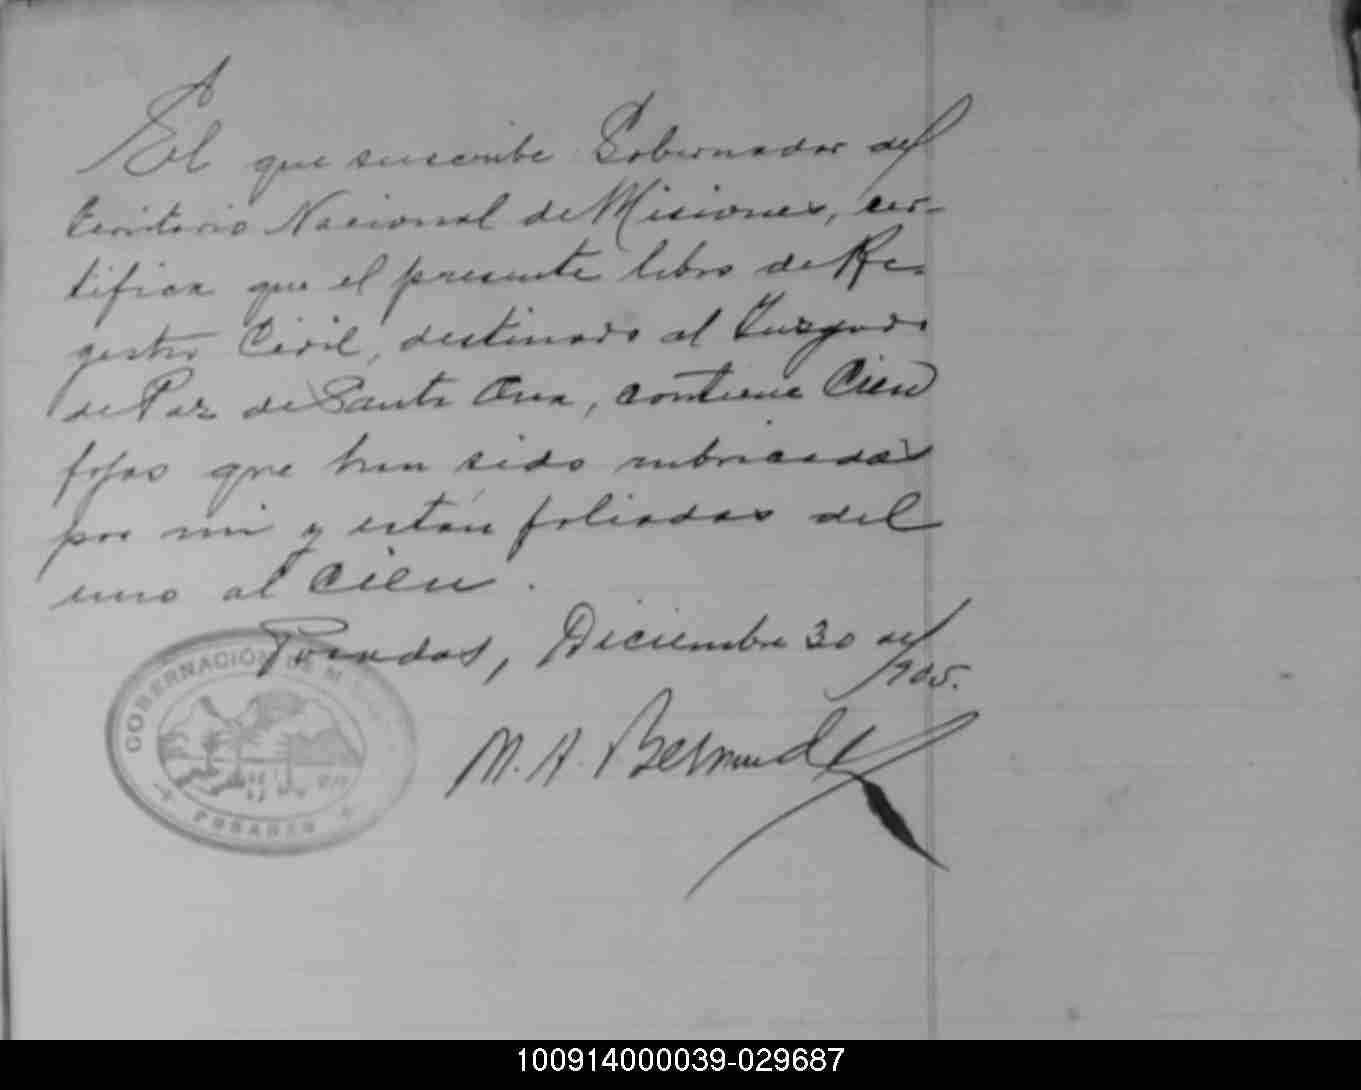 El que suscribe Gobernador del
territorio Nacional de Misiones, cer-
tifica que el presente libro de Re-
gistro Civil, destinado al Juzgado
de Paz de Santa Ana, contiene Cien
fojas que han sido rubricadas
por mi y están foliadas del
uno al Cien.
Posadas, Diciembre 30 del
1905.
GOBERNACIÓN DE MISIONES
POSADAS
M. A. Bermudez
100914000039-029687